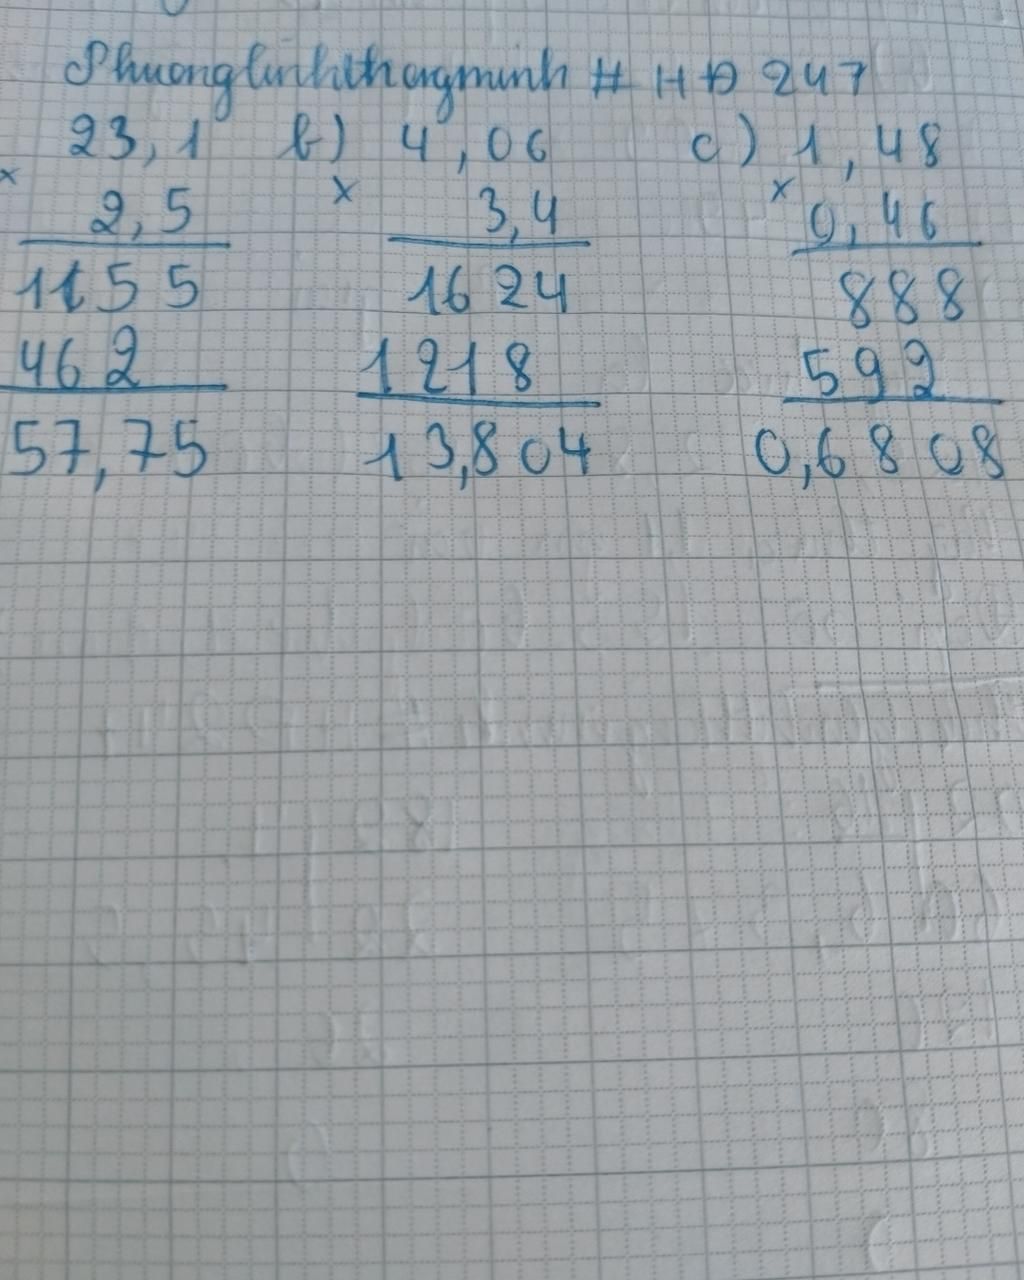 Phuonglinhthongminh # HĐ 247
23,1 b) 4,06 c) 1,48
× × ×
2,5 3,4 0,46
1155 1624 888
462 1218 592
57,75 13,804 0,6808